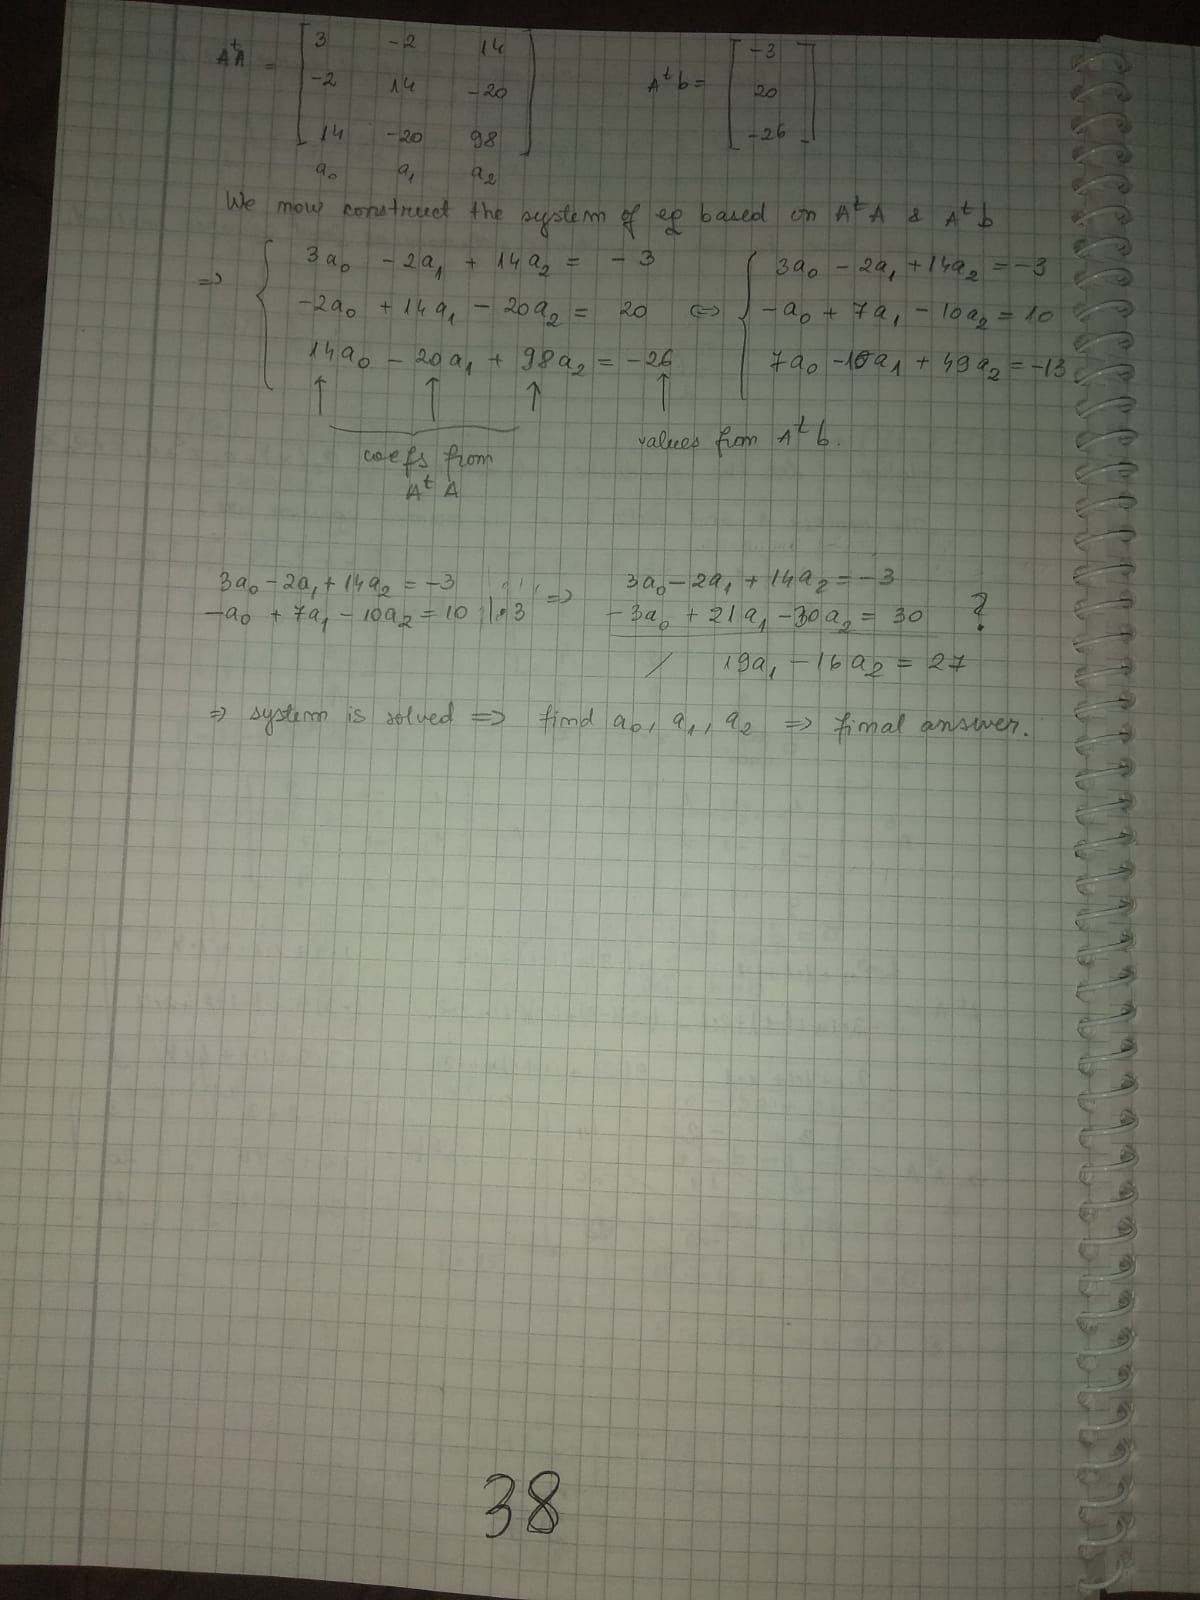 AᵗA = [ 3 -2 14 ; -2 14 -20 ; 14 -20 98 ]   Aᵗb = [ -3 ; 20 ; -26 ]
a₀ a₁ a₂
We now construct the system of eq based on AᵗA & Aᵗb
⇒ { 3a₀ - 2a₁ + 14a₂ = -3   { 3a₀ - 2a₁ + 14a₂ = -3
-2a₀ + 14a₁ - 20a₂ = 20 ⇔ -a₀ + 7a₁ - 10a₂ = 10
14a₀ - 20a₁ + 98a₂ = -26   7a₀ - 10a₁ + 49a₂ = -13
↑ ↑ ↑ ↑
coefs from   values from Aᵗb.
AᵗA
3a₀ - 2a₁ + 14a₂ = -3 ⇒ 3a₀ - 2a₁ + 14a₂ = -3
-a₀ + 7a₁ - 10a₂ = 10 |·3   -3a₀ + 21a₁ - 30a₂ = 30 ?
/ 19a₁ - 16a₂ = 27
⇒ system is solved ⇒ find a₀, a₁, a₂ ⇒ final answer.
38